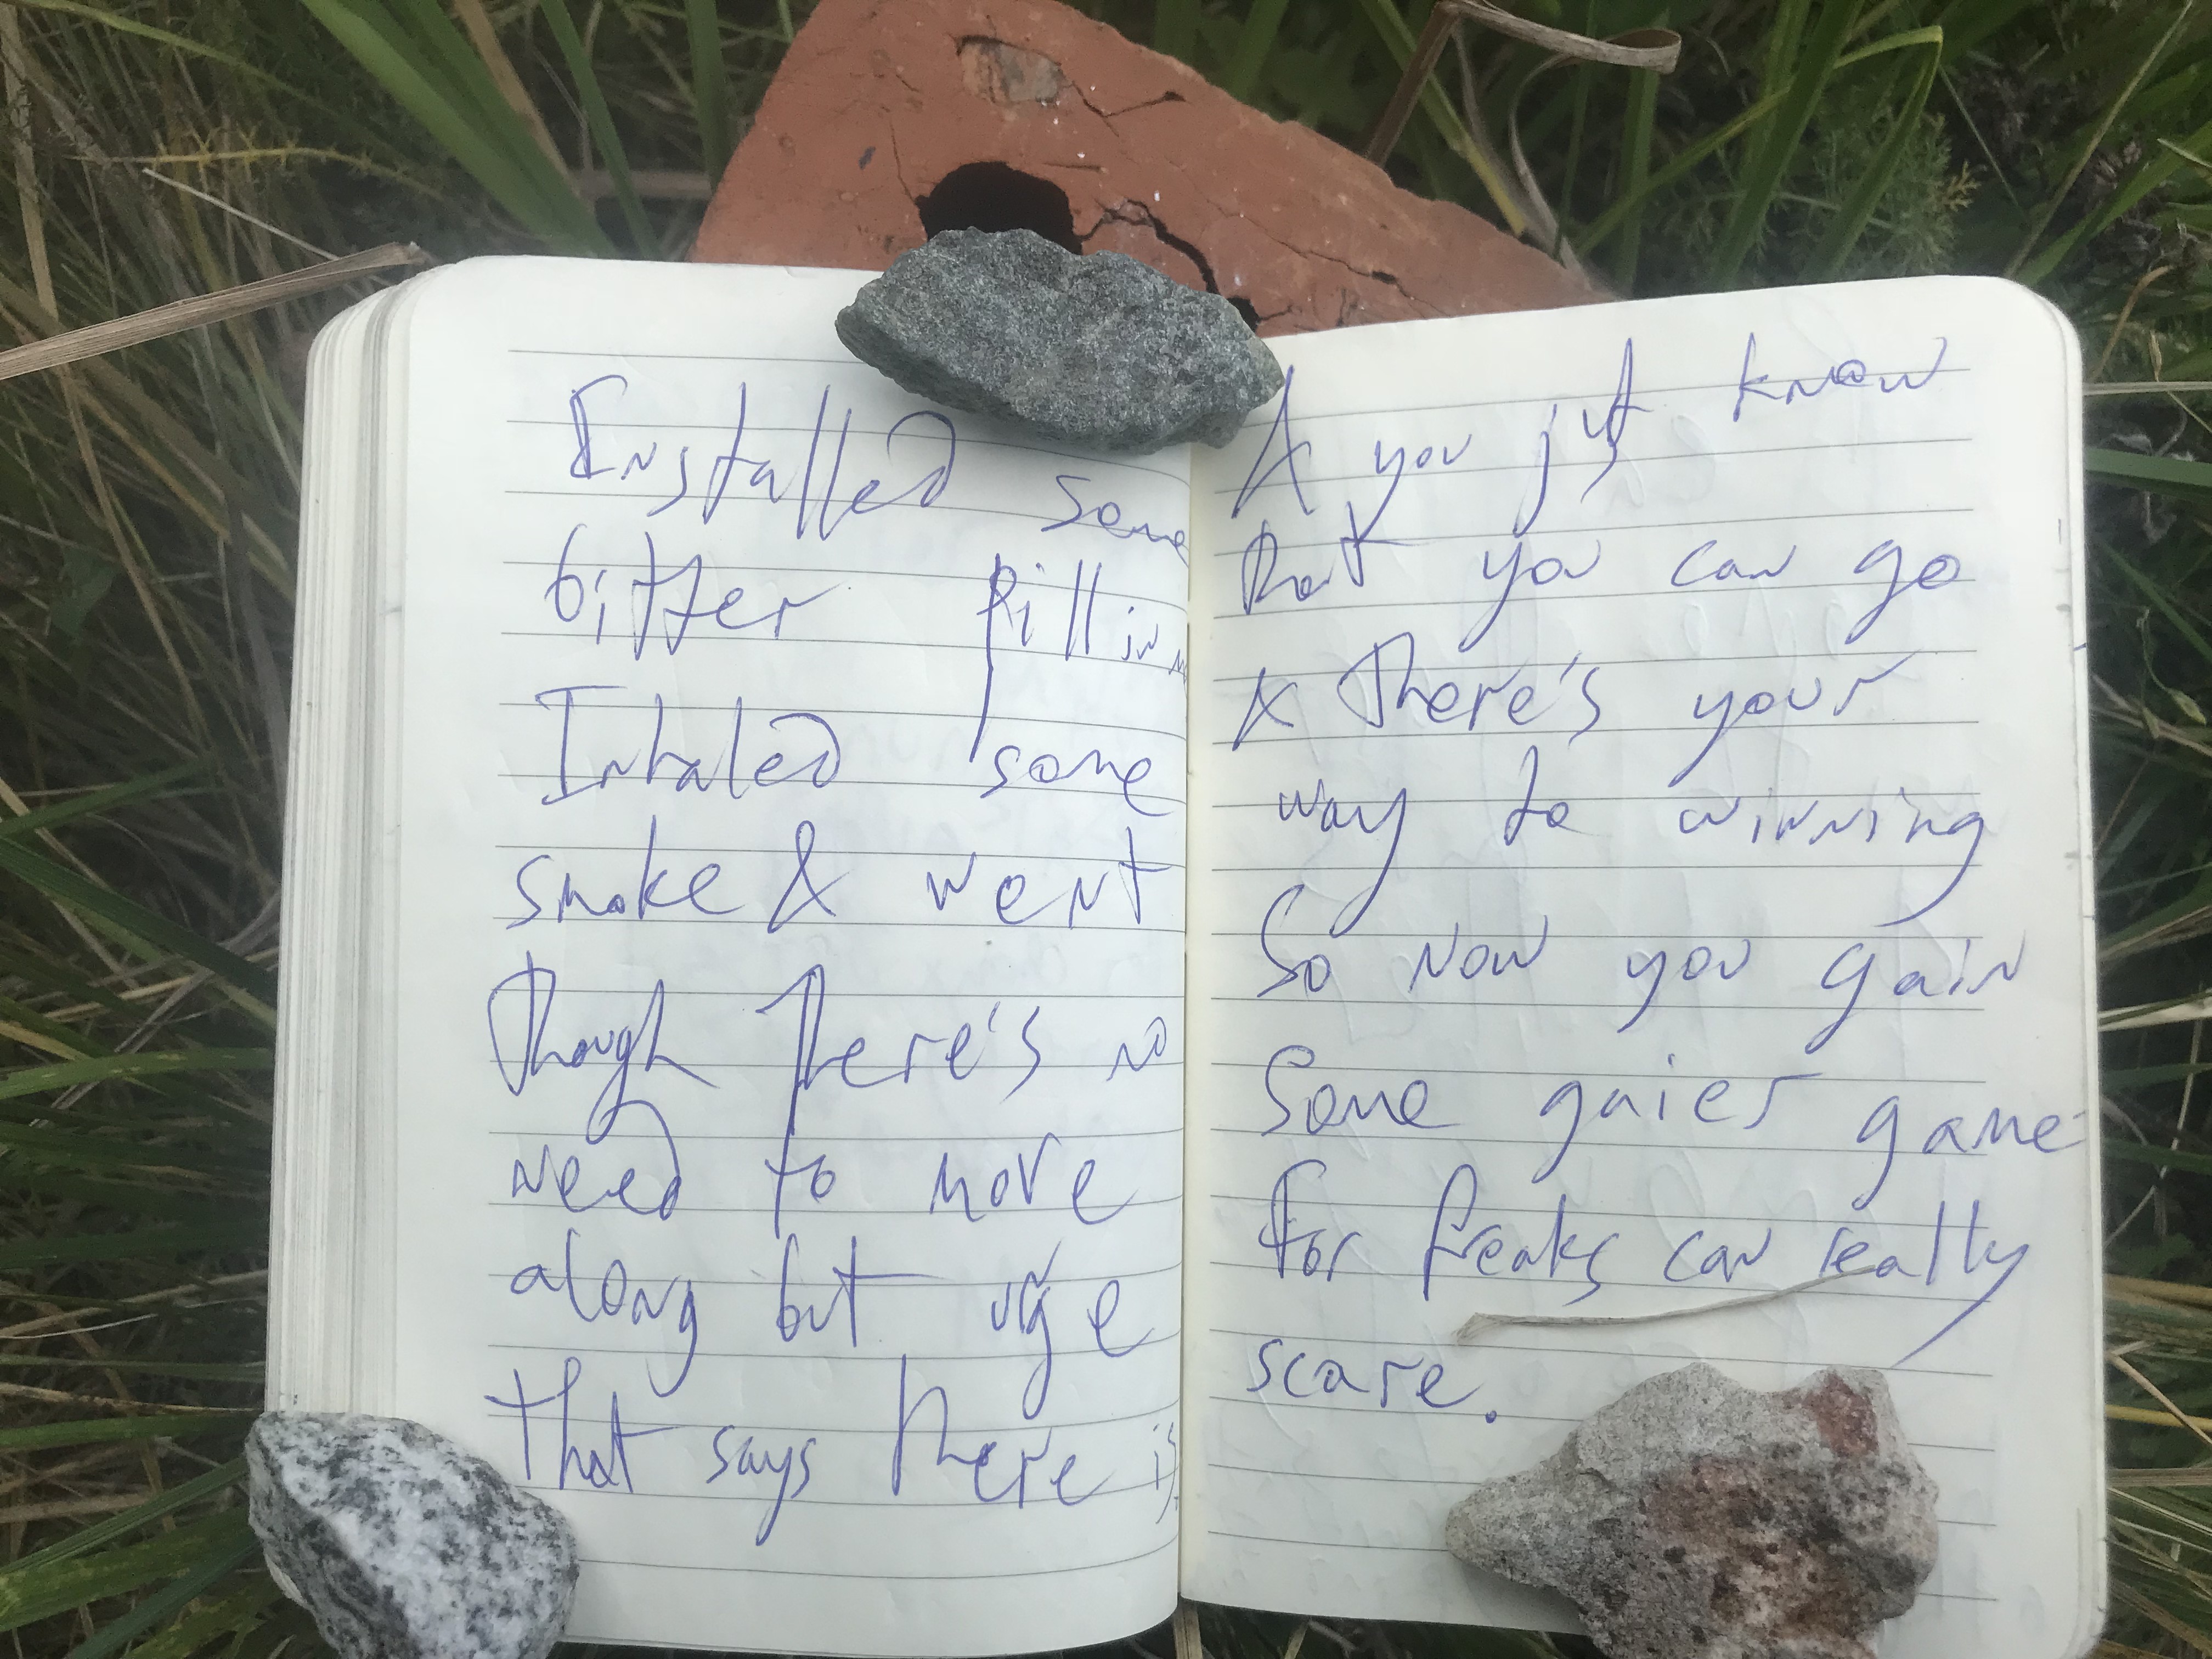 Enstalled some
bitter pill in me
Inhaled some
smoke & went
though there's no
need to move
along but urge
that says there is
& you just know
that you can go
& there's your
way to winning
So now you gain
Some game
for can really
scare.